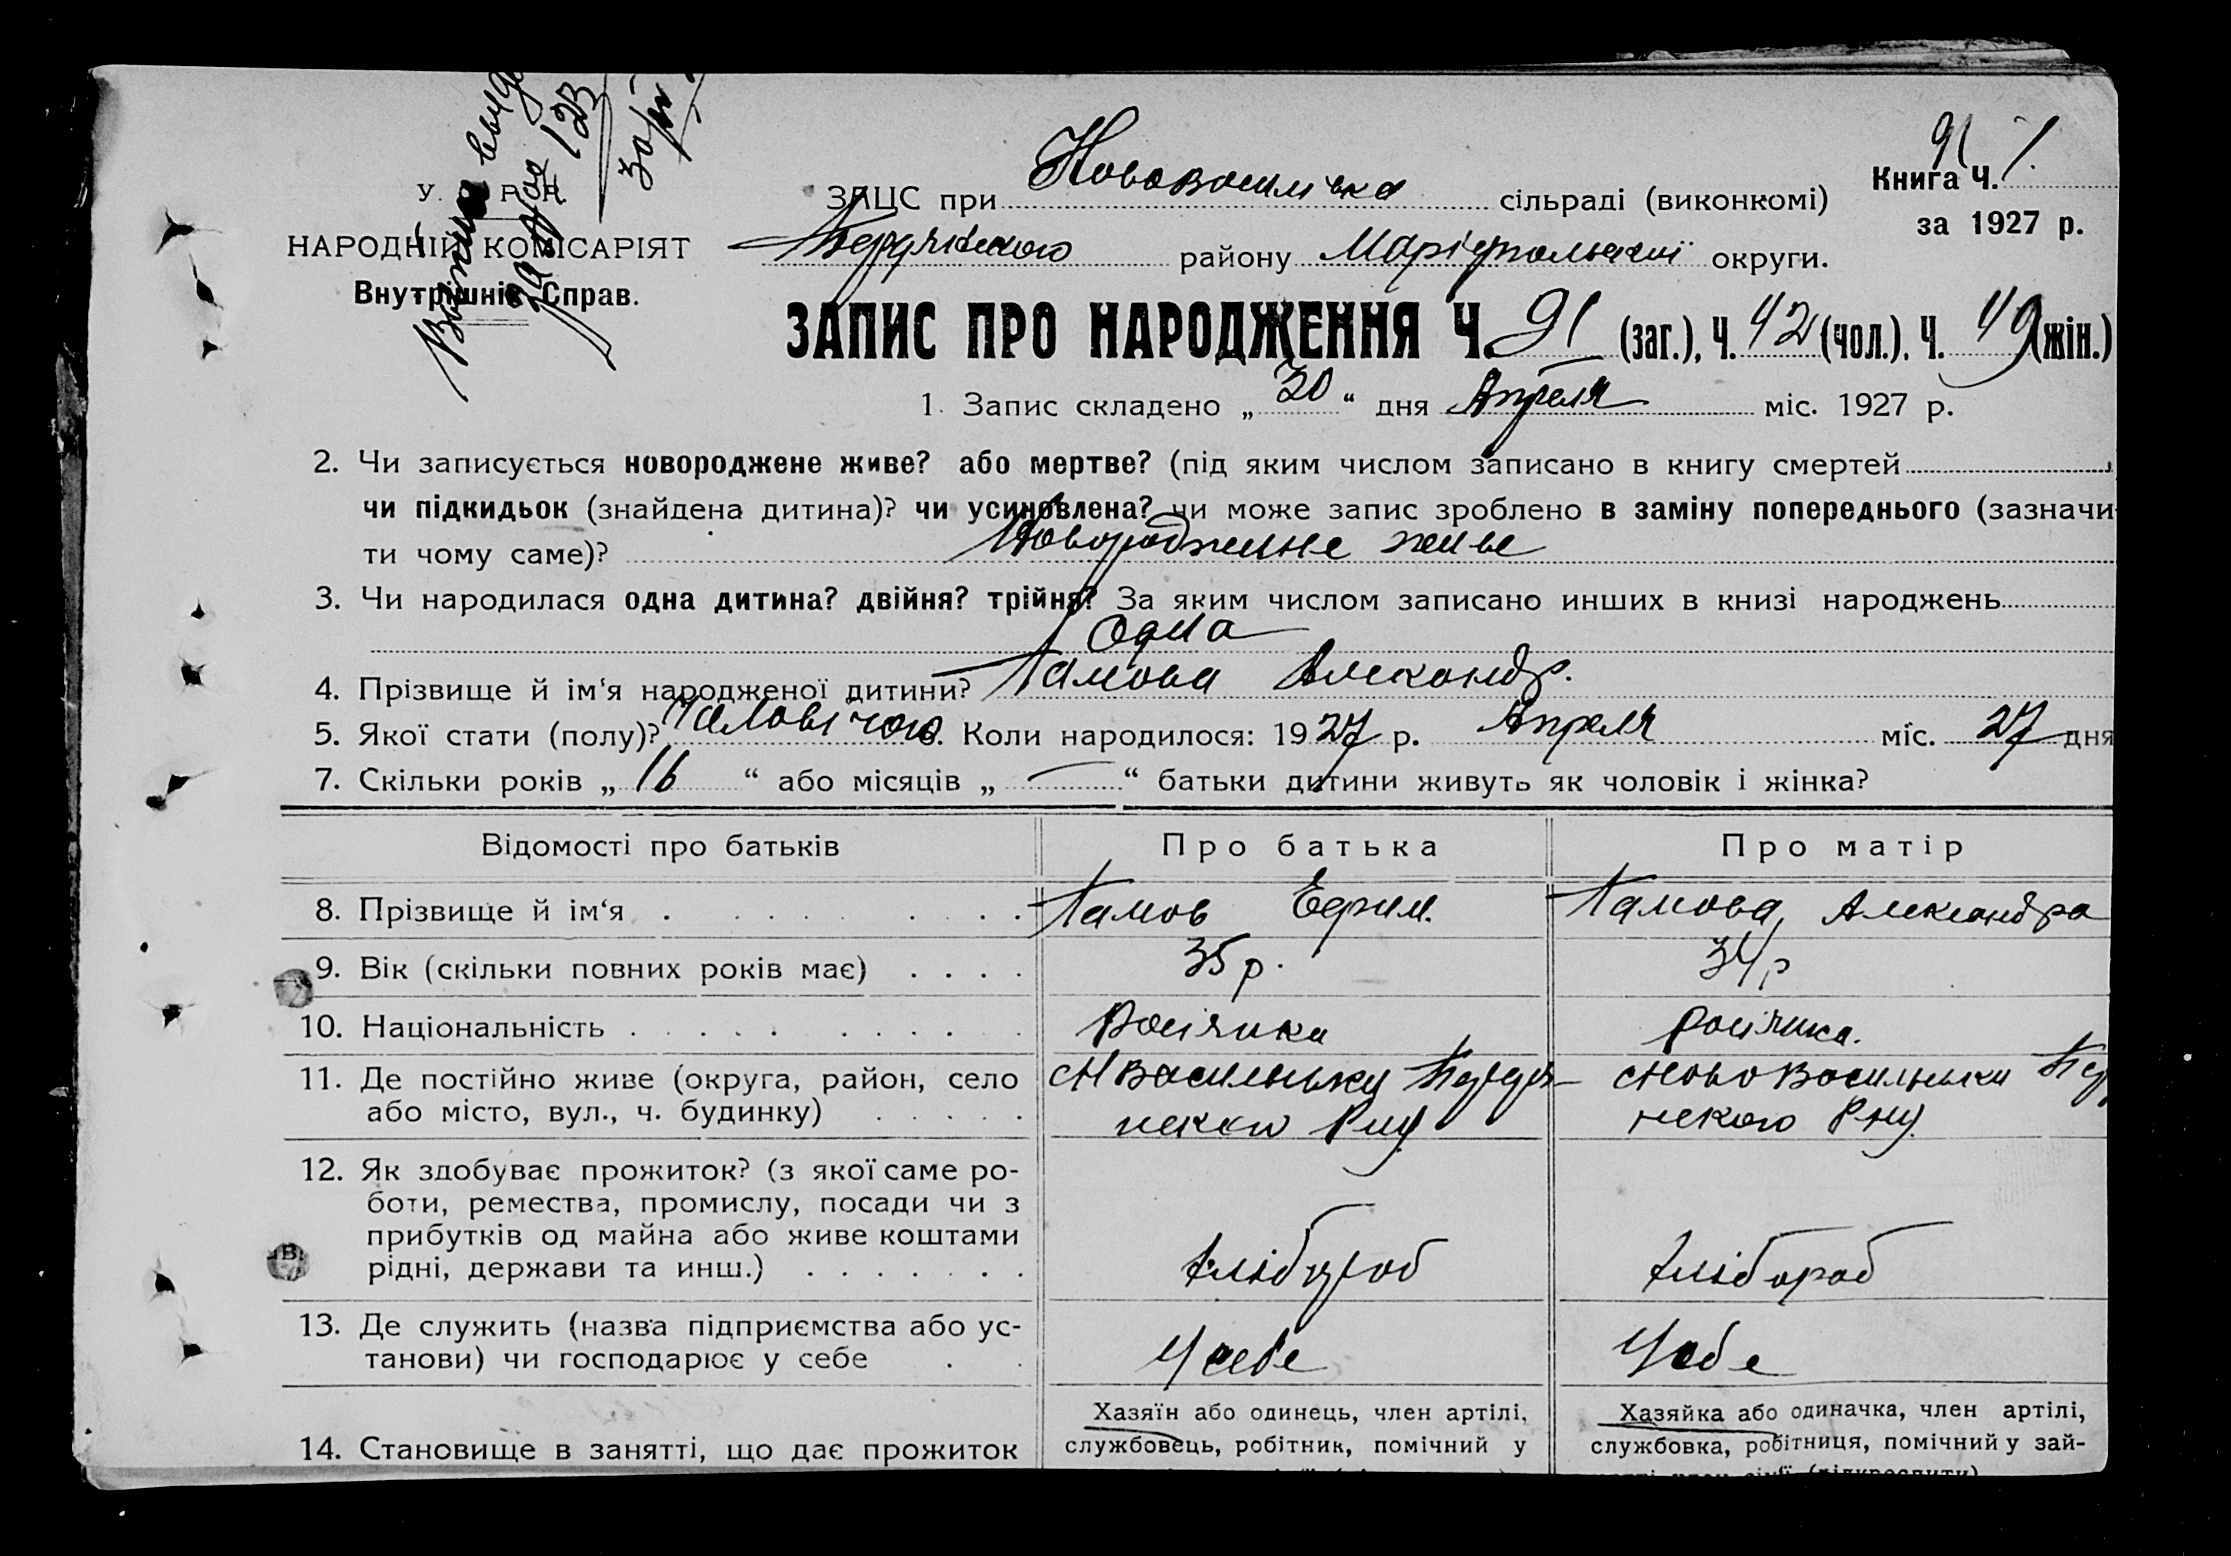 У. Р Р.
НАРОДНІЙ КОМІСАРІЯТ
Внутрішніх Справ.
за № 123
Книга Ч. 1.
91
за 1927 р.
ЗАЦС при Нововасилівка сільраді (виконкомі)
Бердянського району Маріупольської округи.
ЗАПИС ПРО НАРОДЖЕННЯ Ч. 91 (заг.), Ч. 42 (чол.), Ч. 49 (жін.)
1. Запис складено „ 30 “ дня Апреля міс. 1927 р.
2. Чи записується новороджене живе? або мертве? (під яким числом записано в книгу смертей
чи підкидьок (знайдена дитина)? чи усиновлена? чи може запис зроблено в заміну попереднього (зазначи-
ти чому саме)? Новороджене живе
3. Чи народилася одна дитина? двійня? трійня? За яким числом записано инших в книзі народжень
Одна
4. Прізвище й ім‘я народженої дитини? Памова Александр.
5. Якої стати (полу)? Чаловічого. Коли народилося: 1927 р. Апреля міс. 27 дня
7. Скільки років „ 16 “ або місяців „ — “ батьки дитини живуть як чоловік і жінка?
Відомості про батьків Про батька Про матір
8. Прізвище й ім‘я Памов Ефим. Памова, Александра
9. Вік (скільки повних років має) 35 р. 34 р
10. Національність Росіянка росіянка.
11. Де постійно живе (округа, район, село с НВасильевку Бердя- с Ново Васильевки Бер
або місто, вул., ч. будинку) нского Рну нского Рну
12. Як здобуває прожиток? (з якої саме ро-
боти, ремества, промислу, посади чи з
прибутків од майна або живе коштами
рідні, держави та инш.) хлібороб хлібороб
13. Де служить (назва підприємства або ус-
танови) чи господарює у себе У себе У себе
Хазяїн або одинець, член артілі, Хазяйка або одиначка, член артілі,
14. Становище в занятті, що дає прожиток службовець, робітник, помічний у службовка, робітниця, помічний у зай-